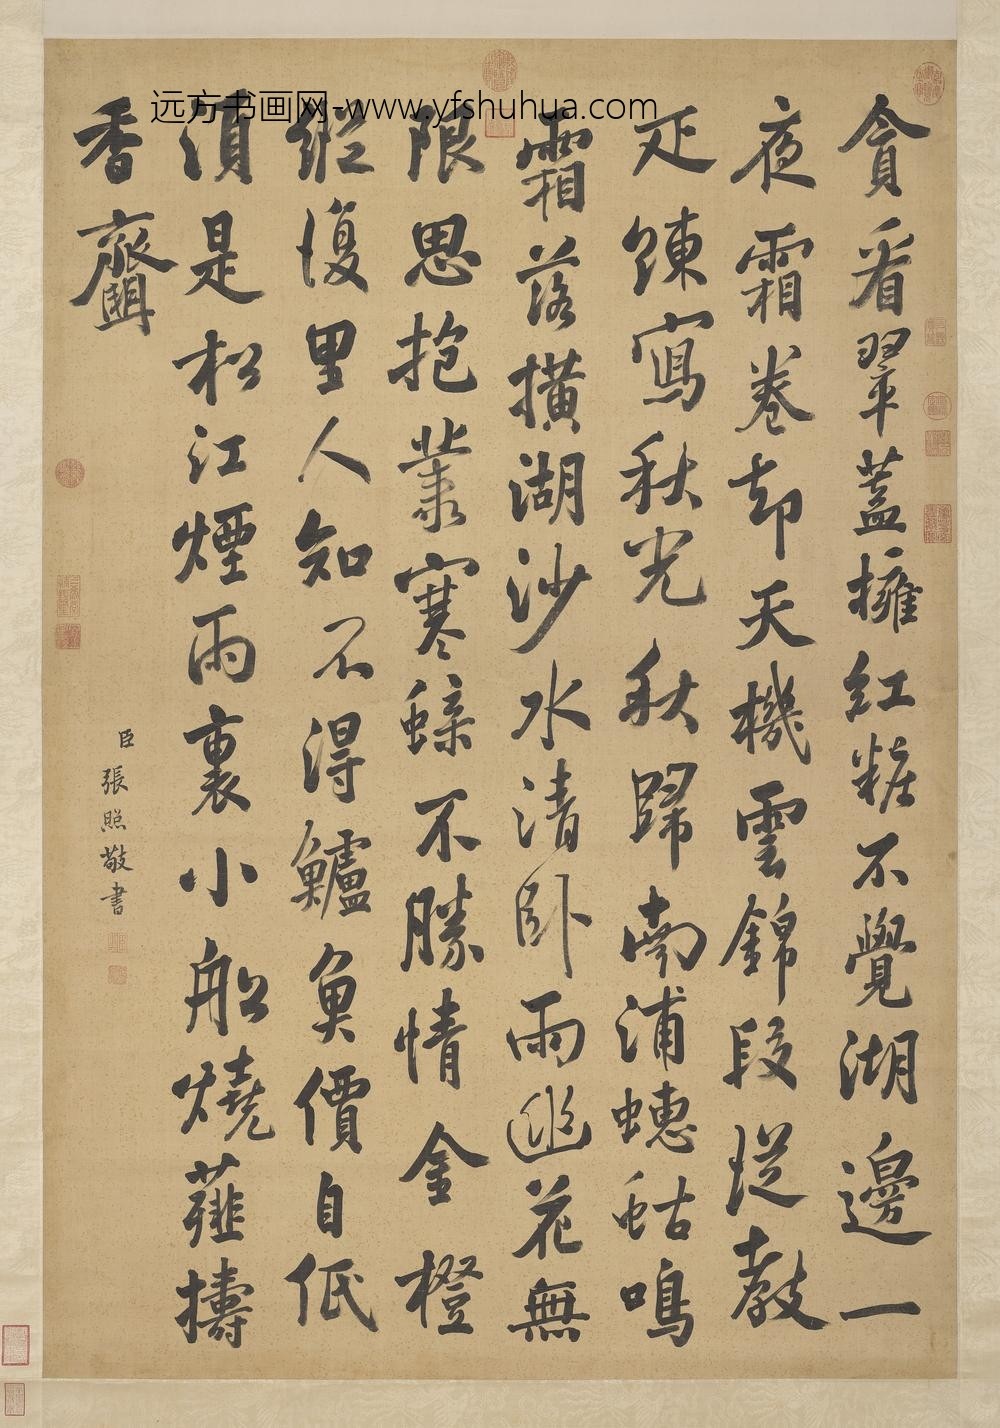 远方书画网-www.yfshuhua.com
貪看翠蓋擁紅糚不覺湖邊一
夜霜卷却天機雲錦段從教
疋練寫秋光秋歸南浦蟪蛄鳴
霜落橫湖沙水清卧雨幽花無
限思抱叢寒蜨不勝情金橙
縱復里人知不得鱸魚價自低
須是松江煙雨裏小船燒薤擣
香虀
臣張照敬書